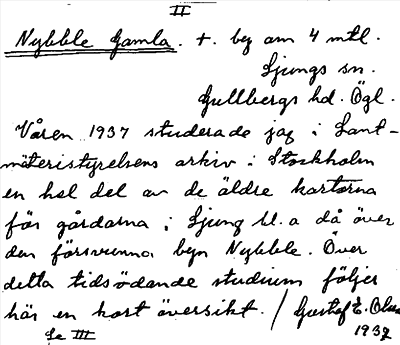 II
Nybble Gamla. +. by om 4 mtl.
Ljungs sn.
Gullbergs hd. Ögl.
Våren 1937 studerade jag i Lant-
mäteristyrelsens arkiv i Stockholm
en hel del av de äldre kartorna
för gårdarna i Ljung bl. a då över
den försvunna byn Nybble. Över
detta tidsödande studium följer
här en kort översikt. / Gustaf E. Olsson
Se III 1937